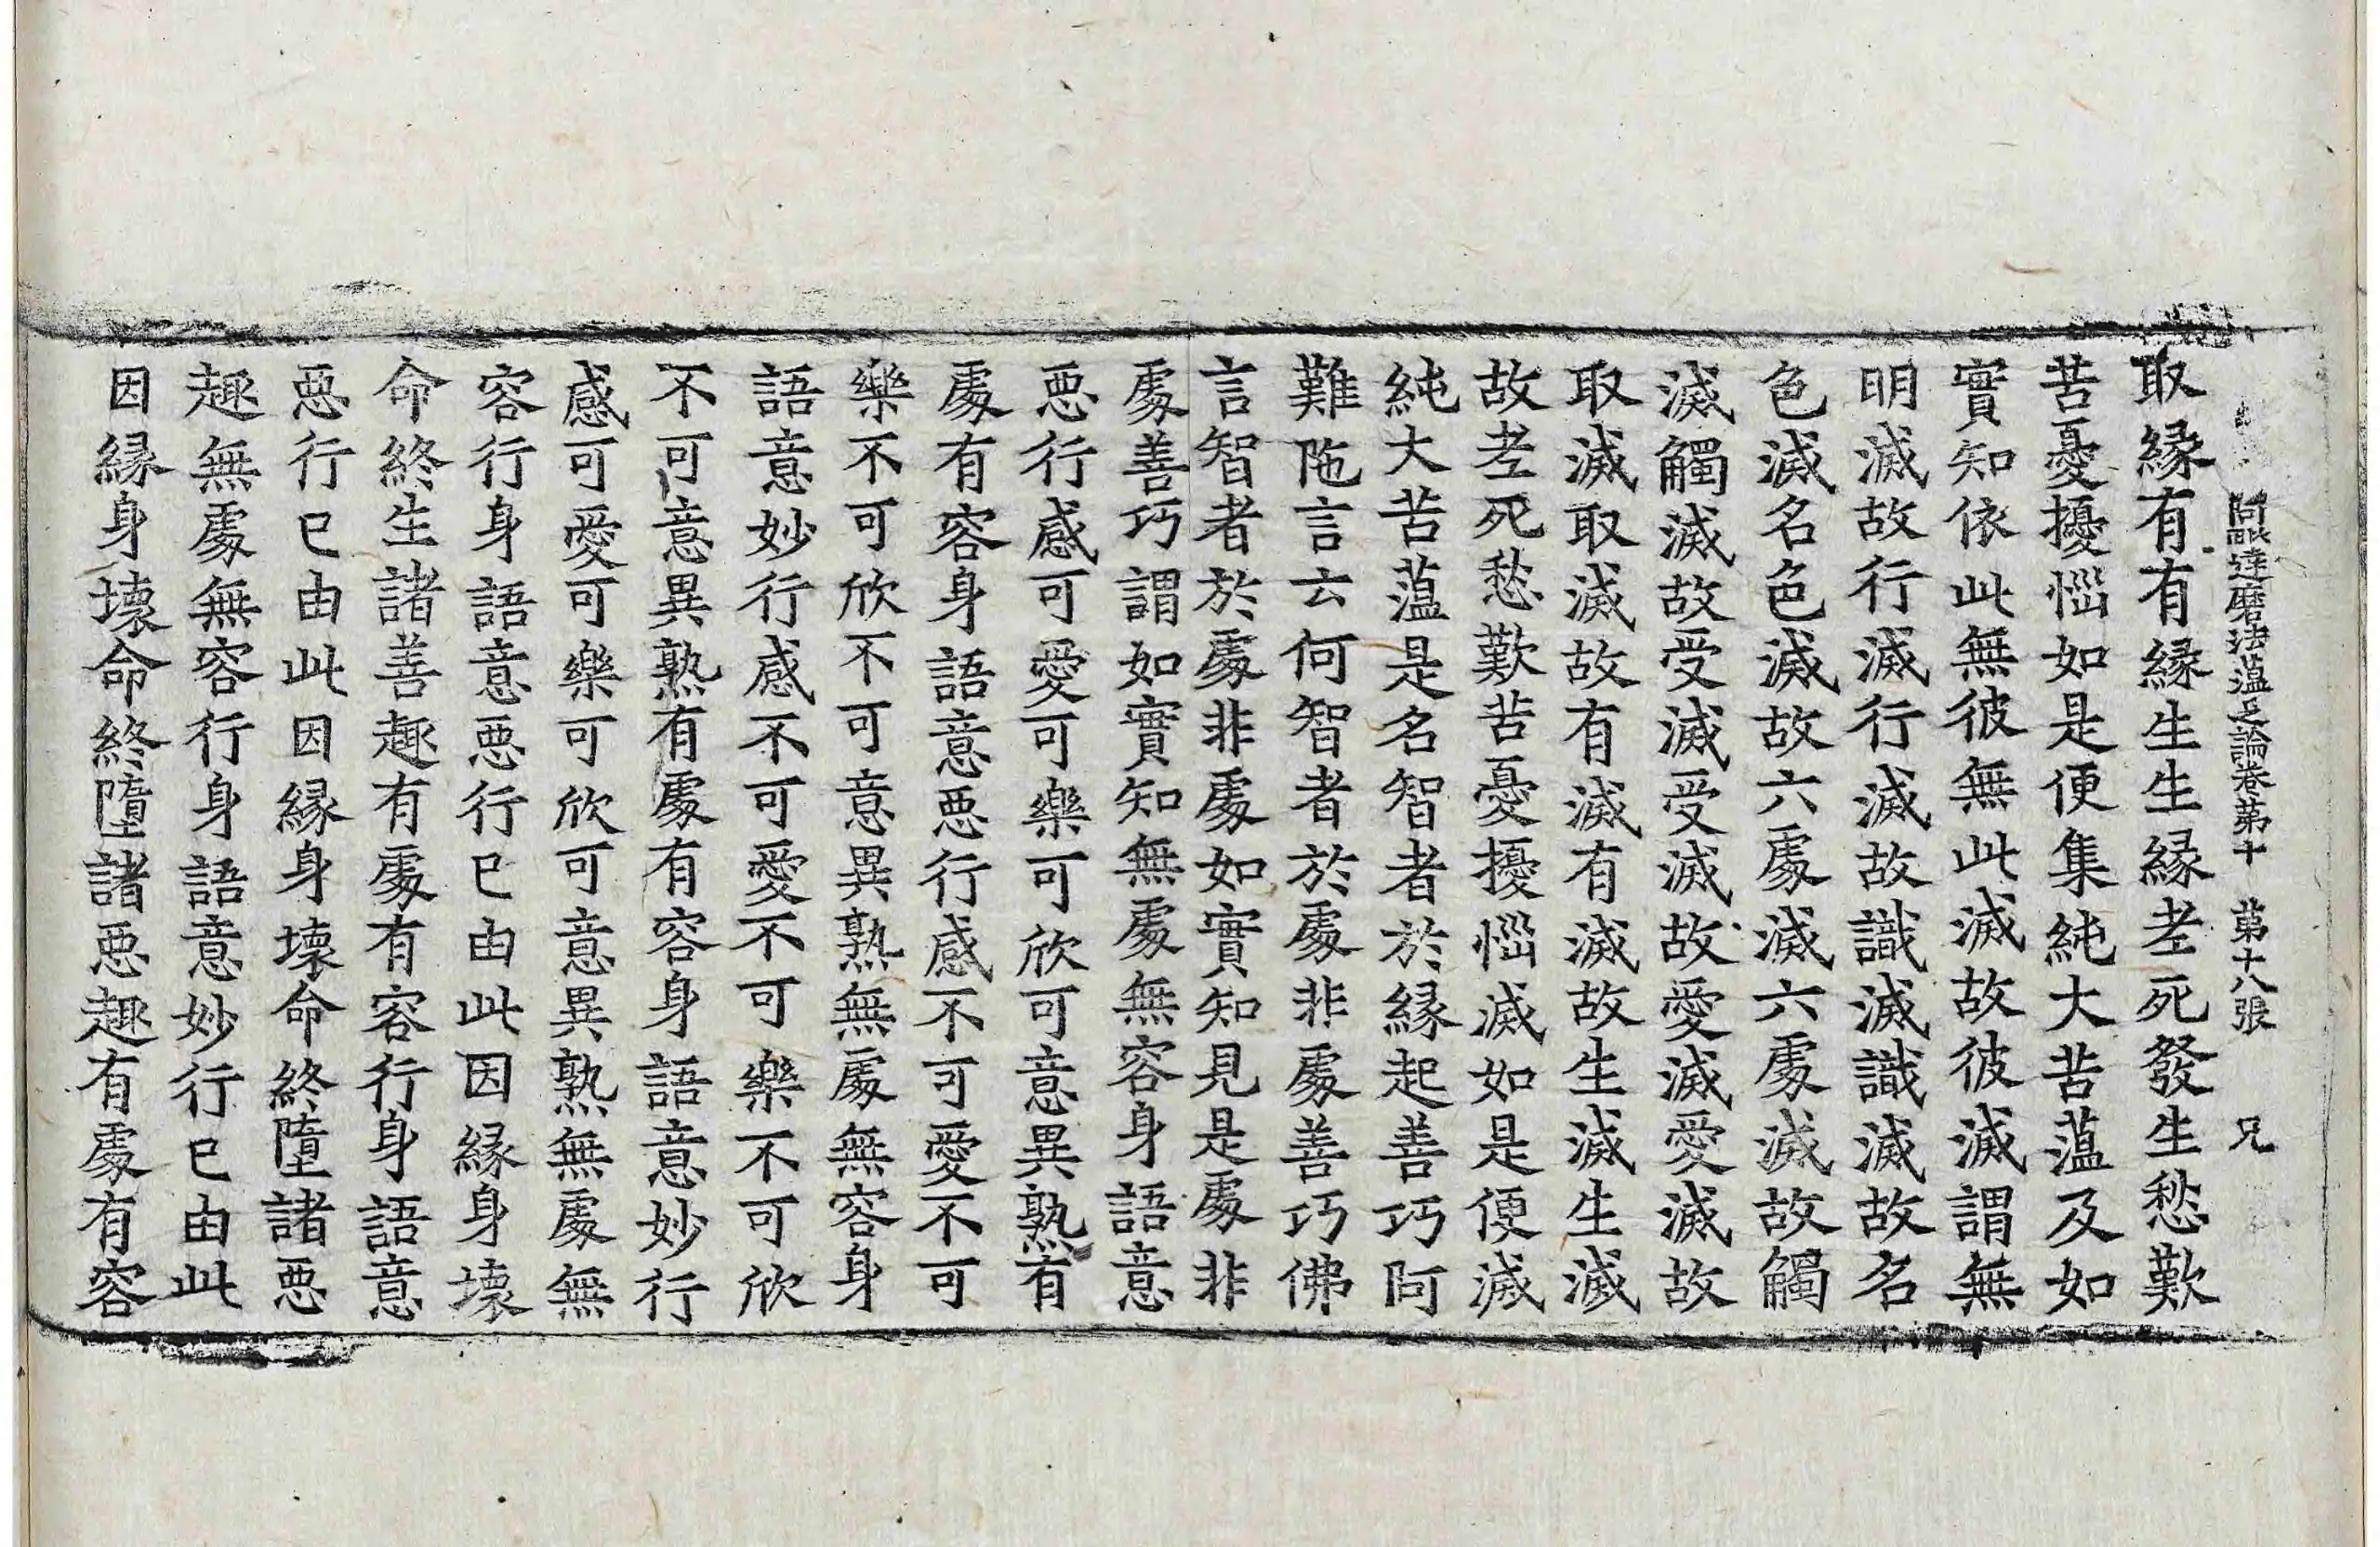 阿毗達磨法蘊足論卷第十 第十八張 兄
取緣有有緣生生緣老死發生愁歎
苦憂擾惱如是便集純大苦蘊及如
實知依此無彼無此滅故彼滅謂無
明滅故行滅行滅故識滅識滅故名
色滅名色滅故六處滅六處滅故觸
滅觸滅故受滅受滅故愛滅愛滅故
取滅取滅故有滅有滅故生滅生滅
故老死愁歎苦憂擾惱滅如是便滅
純大苦蘊是名智者於緣起善巧阿
難陁言云何智者於處非處善巧佛
言智者於處非處如實知見是處非
處善巧謂如實知無處無容身語意
惡行感可愛可樂可欣可意異熟有
處有容身語意惡行感不可愛不可
樂不可欣不可意異熟無處無容身
語意妙行感不可愛不可樂不可欣
不可意異熟有處有容身語意妙行
感可愛可樂可欣可意異熟無處無
容行身語意惡行已由此因緣身壞
命終生諸善趣有處有容行身語意
惡行已由此因緣身壞命終墮諸惡
趣無處無容行身語意妙行已由此
因緣身壞命終墮諸惡趣有處有容